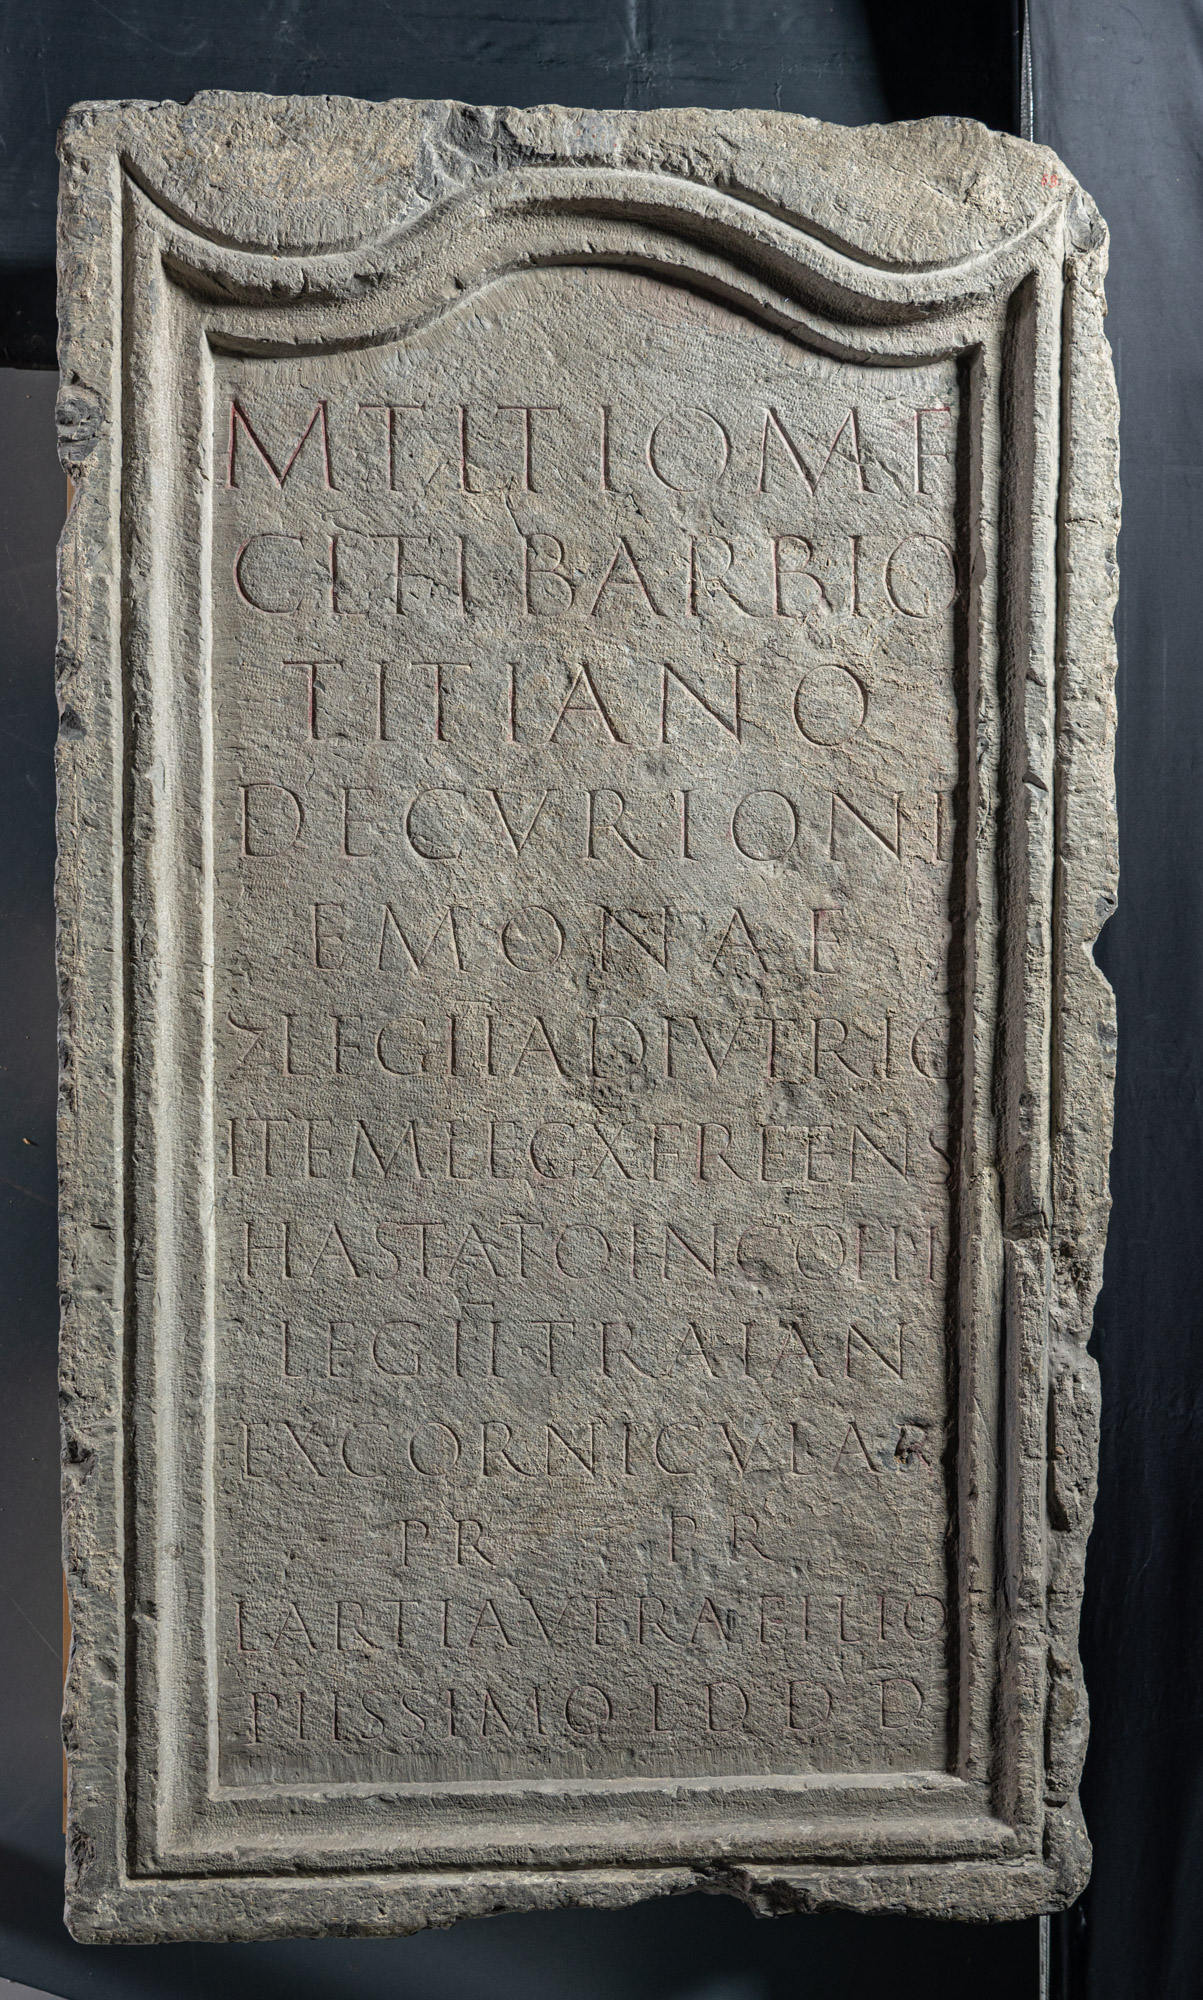 M TITIO M F
CL TI BARBIO
TITIANO
DECVRIONI
EMONAE
7 LEG II ADIVTRIC
ITEM LEG X FRETENS
HASTATO IN COH I
LEG II TRAIAN
EX CORNICVLAR
PR PR
LARTIA VERA FILIO
PIISSIMO L D D D